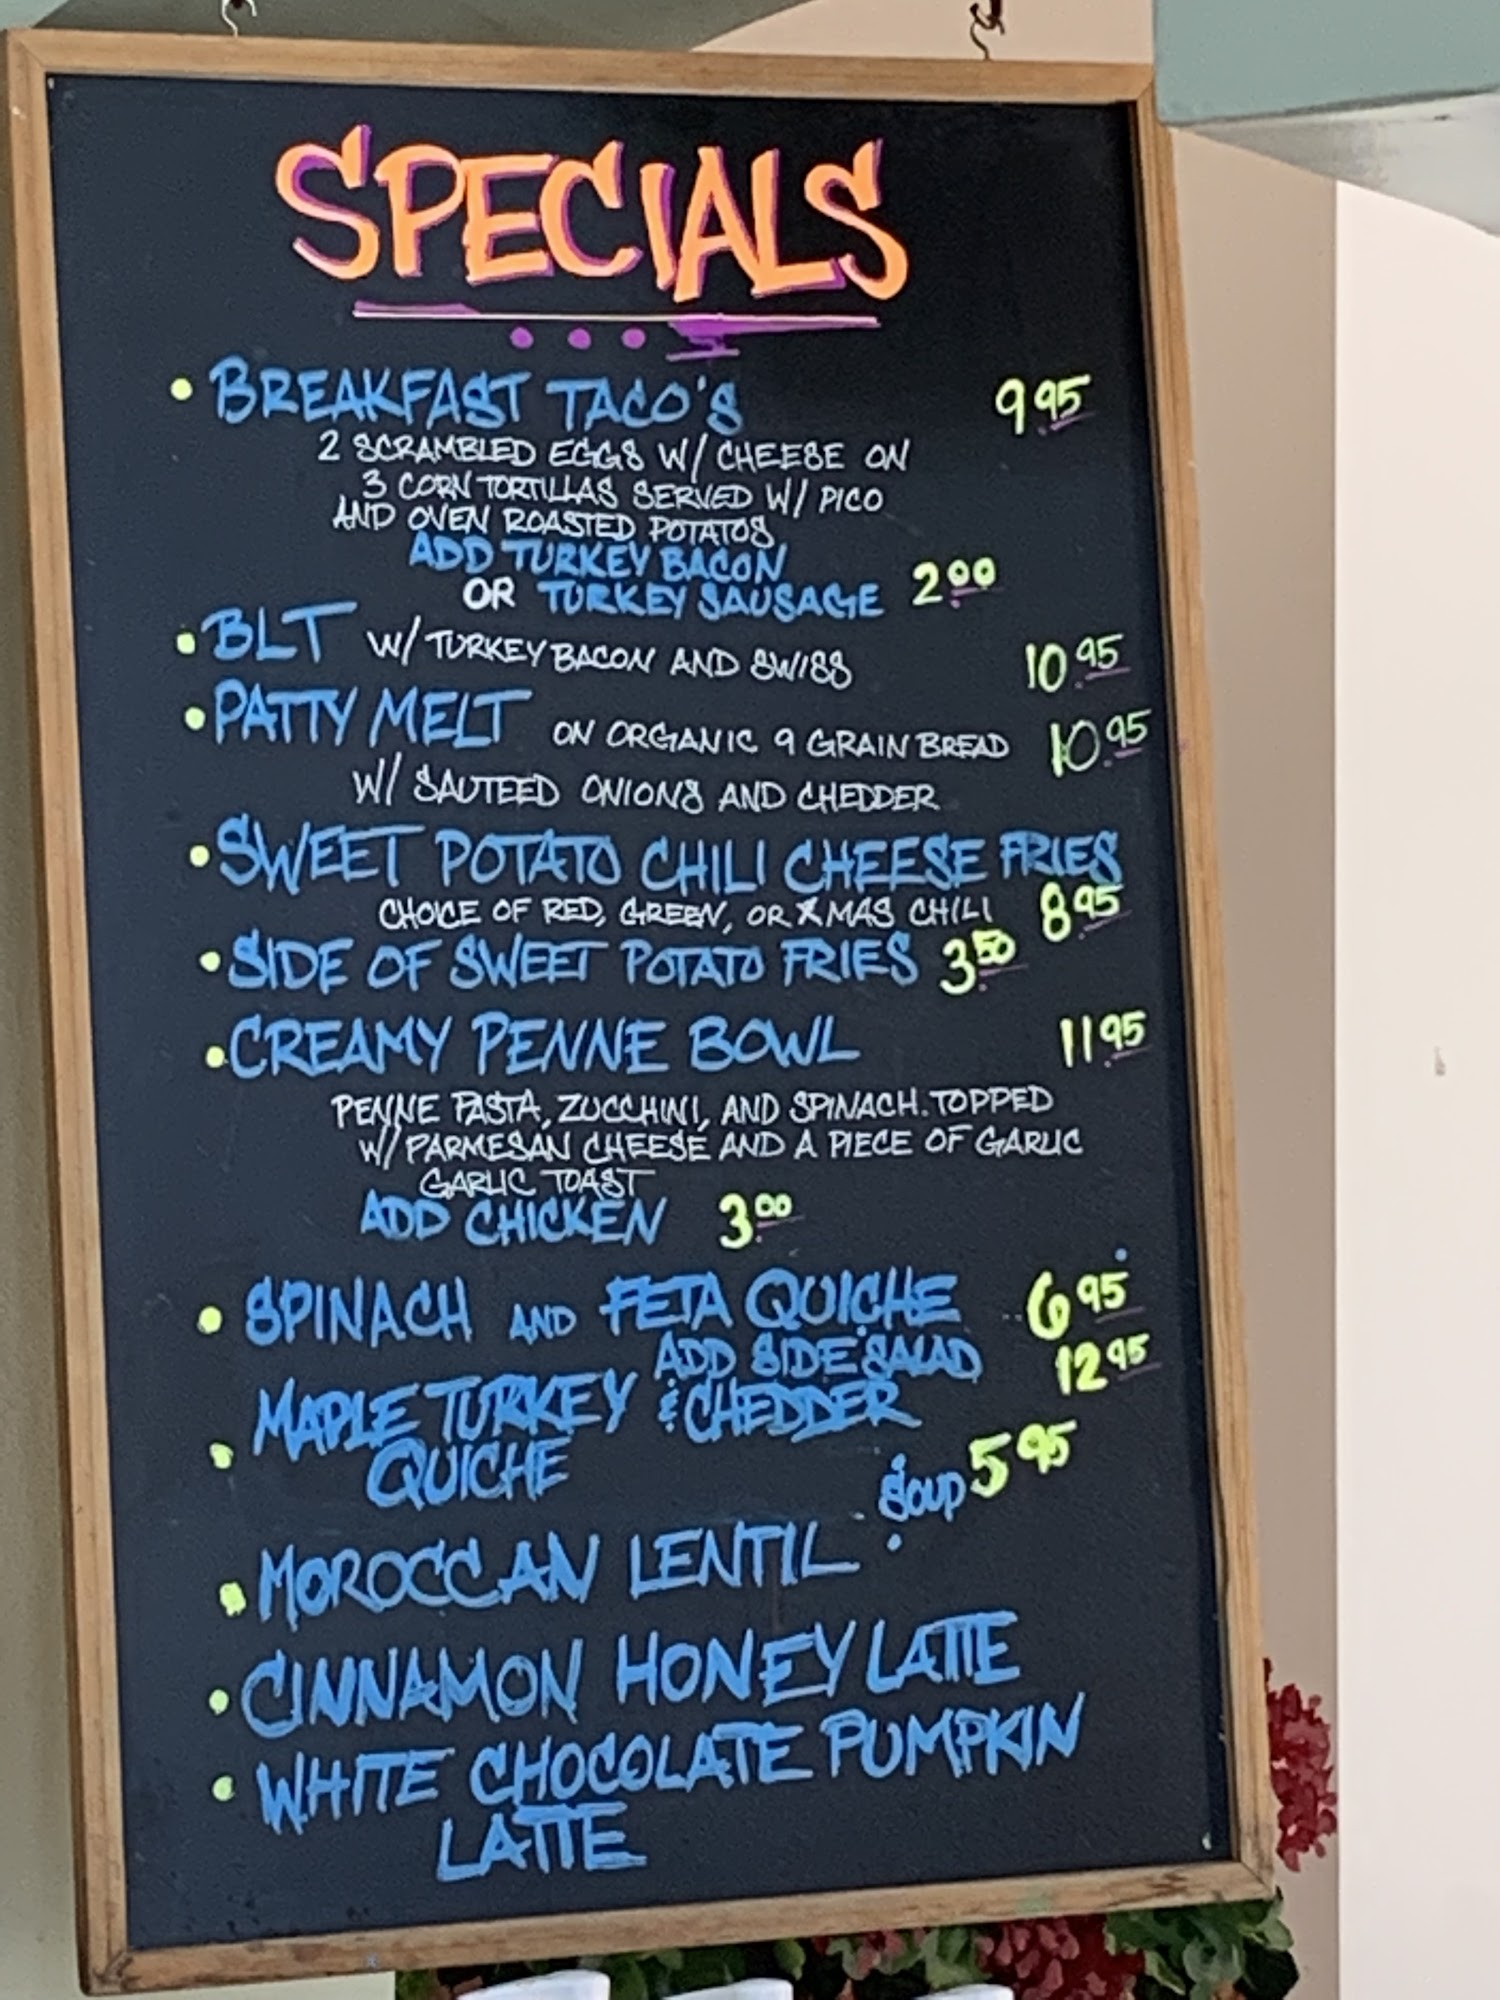 SPECIALS
• BREAKFAST TACO'S 9.95
2 SCRAMBLED EGGS W/ CHEESE ON
3 CORN TORTILLAS SERVED W/ PICO
AND OVEN ROASTED POTATOS
ADD TURKEY BACON
OR TURKEY SAUSAGE 2.00
• BLT W/ TURKEY BACON AND SWISS 10.95
• PATTY MELT ON ORGANIC 9 GRAIN BREAD 10.95
W/ SAUTEED ONIONS AND CHEDDER
• SWEET POTATO CHILI CHEESE FRIES
CHOICE OF RED, GREEN, OR XMAS CHILI 8.95
• SIDE OF SWEET POTATO FRIES 3.50
• CREAMY PENNE BOWL 11.95
PENNE PASTA, ZUCCHINI, AND SPINACH. TOPPED
W/ PARMESAN CHEESE AND A PIECE OF GARLIC
GARLIC TOAST
ADD CHICKEN 3.00
• SPINACH AND FETA QUICHE 6.95
ADD SIDE SALAD 12.95
• MAPLE TURKEY & CHEDDER
QUICHE
SOUP 5.95
• MOROCCAN LENTIL
• CINNAMON HONEY LATTE
• WHITE CHOCOLATE PUMPKIN
LATTE